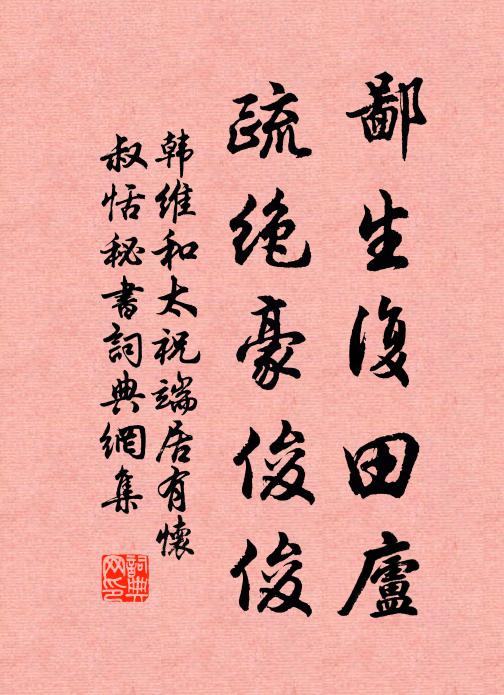 鄙生復田廬
疏绝豪俊俊
韩维和太祝端居有懷
叔恬秘書詞典網集
詞典网印